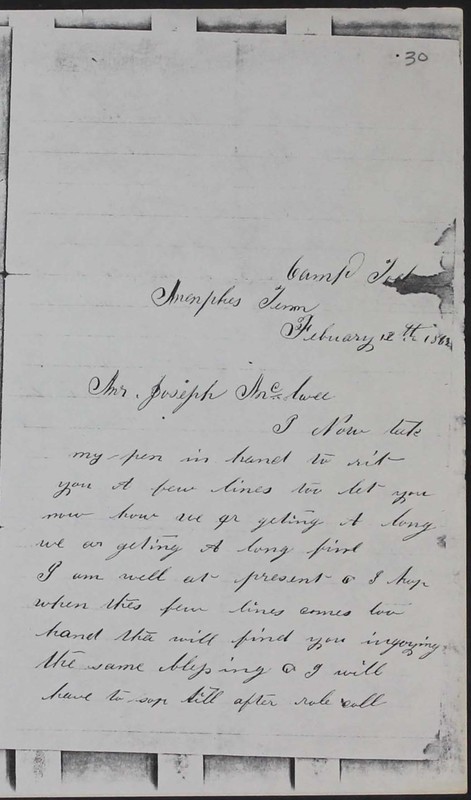 30
Camp
Memphes Tenn
Febuary 12th 186
Mr. Joseph Mc
I Now take
my pen in hand to rit
you A few lines too let you
now how we ar geting A long
we ar geting A long fine
I am well at present & I hop
when thes few lines comes too
hand tha will find you injoying
the same blessing & I will
have to sop till after role call